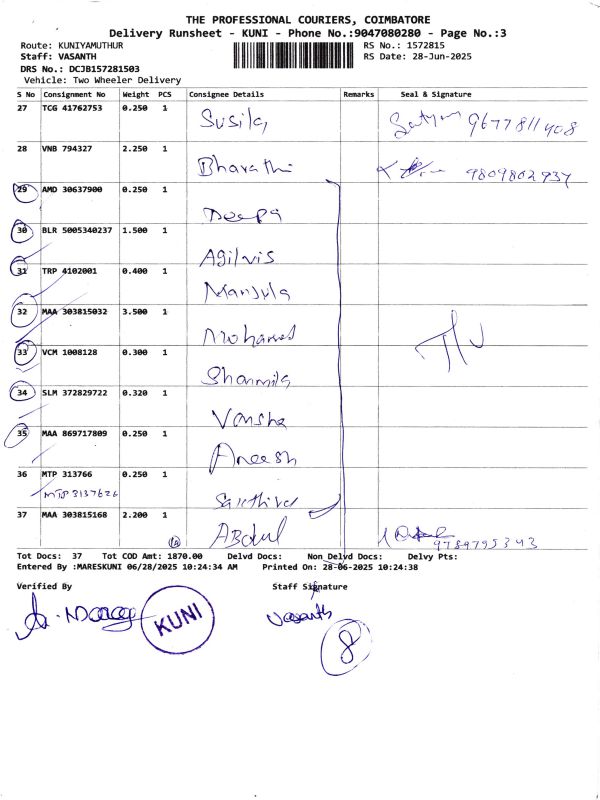 THE PROFESSIONAL COURIERS, COIMBATORE
Delivery Runsheet - KUNI - Phone No.:9047080280 - Page No.:3
Route: KUNIYAMUTHUR RS No.: 1572815
Staff: VASANTH RS Date: 28-Jun-2025
DRS No.: DCJB157281503
Vehicle: Two Wheeler Delivery
S No Consignment No Weight PCS Consignee Details Remarks Seal & Signature
27 TCG 41762753 0.250 1 Susila 9677811408
28 VNB 794327 2.250 1 Bharathi 9809802937
29 AMD 30637900 0.250 1 Deepa
30 BLR 5005340237 1.500 1 Agilvis
31 TRP 4102001 0.400 1 Manjula
32 MAA 303815032 3.500 1 Mohamed
33 VCM 1008128 0.300 1 Sharmila
34 SLM 372829722 0.320 1 Vansha
35 MAA 869717809 0.250 1 Aneesh
36 MTP 313766 0.250 1
MTP 3137626
37 MAA 303815168 2.200 1 Abdul 9789795343
Tot Docs: 37 Tot COD Amt: 1870.00 Delvd Docs: Non_Delvd Docs: Delvy Pts:
Entered By :MARESKUNI 06/28/2025 10:24:34 AM Printed On: 28-06-2025 10:24:38
Verified By Staff Signature
KUNI
Vasanth
8